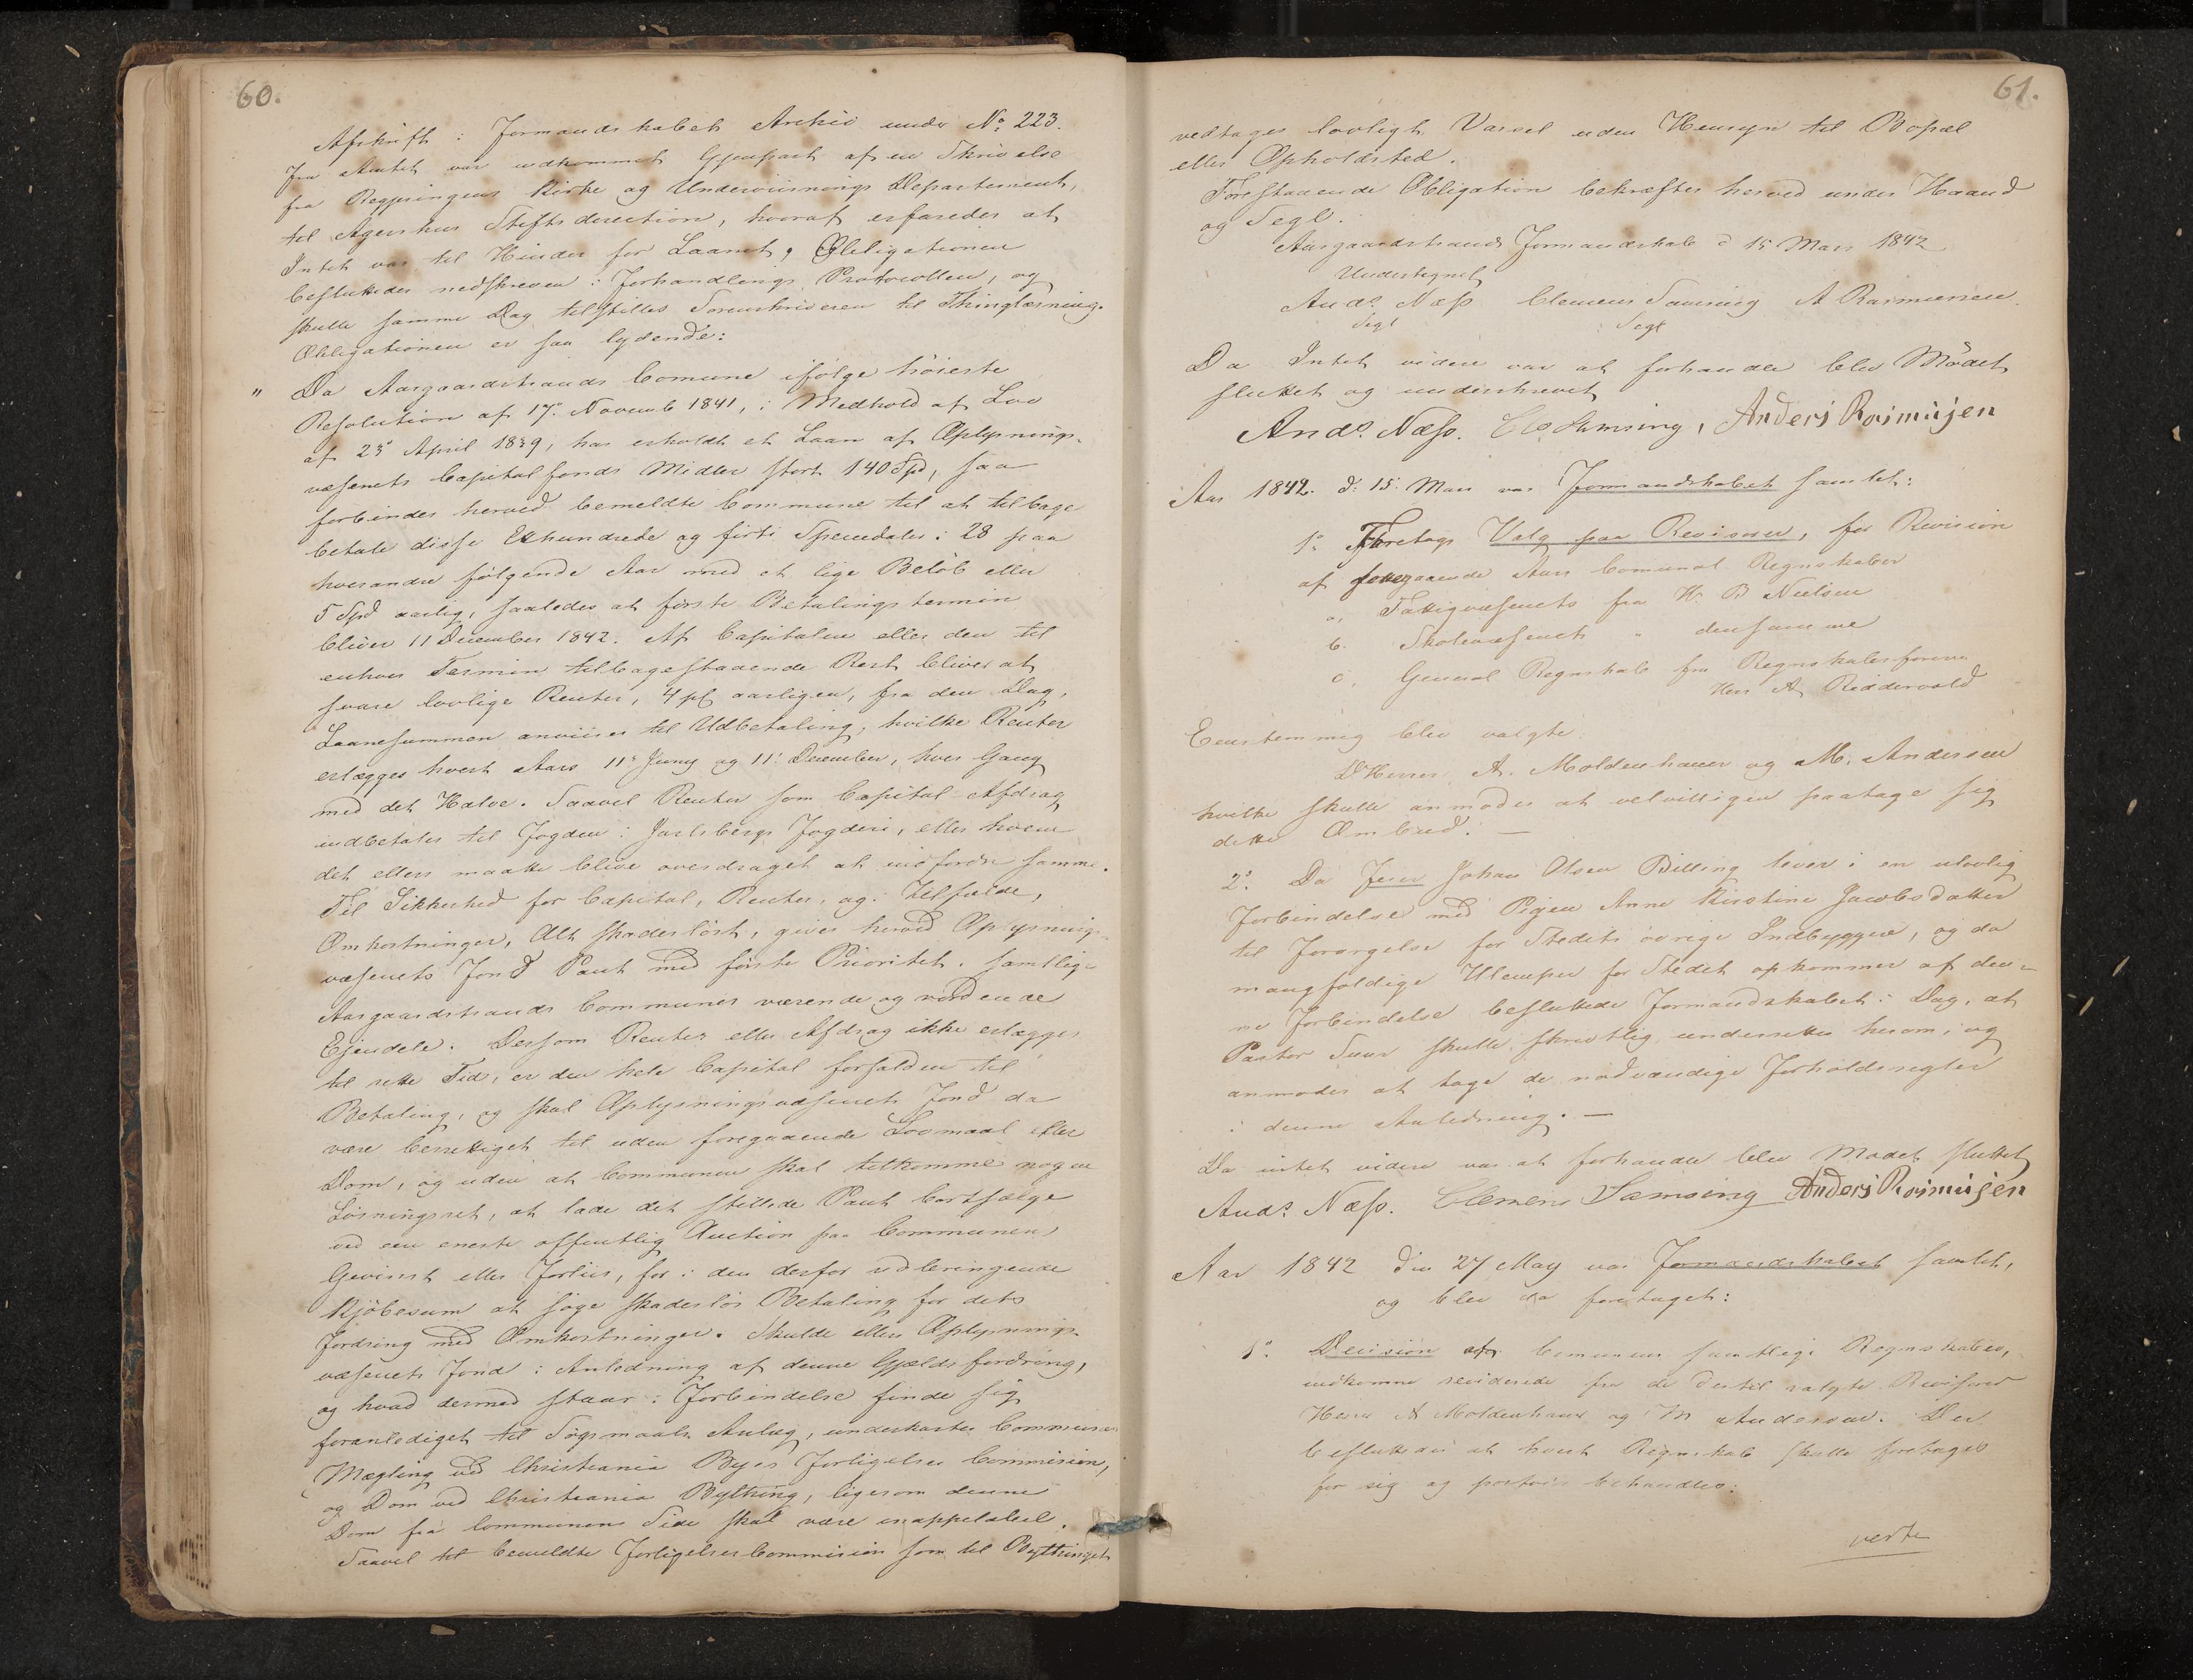 60.
Afskrift i Formandskabets Archiv under No. 223.
Fra Amtet var indkommet Gjenpart af en Skrivelse
fra Regjeringens Kirke og Underviisnings Departement,
til Agershus Stiftsdirection, hvoraf erfaredes at
Intet var til Hinder for Laanet, Obligationen
besluttedes nedskreven i Forhandlings Protocollen, og
skulle samme Dag tilstilles Sorenskriveren til Thinglæsning.
Obligationen er saa lydende:
" Da Aasgaardstrands Comune ifølge høieste
Resolution af 17de Novemb 1841, i Medhold af Lov
af 23de April 1839, har erholdt et Laan af Oplysnings-
væsenets Capitalfonds Midler stort 140 Spd, saa
forbindes herved bemeldte Commune til at tilbage
betale disse Ethundrede og firti Speciedaler i 28 paa
hverandre følgende Aar med et lige Beløb eller
5 Spd aarlig, saaledes at første Betalingstermin
bliver 11 December 1842. Af Capitalen eller den til
enhver Termin tilbagestaaende Rest bliver at
svare lovlige Renter, 4 pC aarligen, fra den Dag,
Laanesummen anvises til Udbetaling, hvilke Renter
erlægges hvert Aars 11te Juny og 11te December, hver Gang
med det Halve. Saavel Renter som Capital-Afdrag
indbetales til Fogden i Jarlsbergs Fogderi, eller hvem
det ellers maatte blive overdraget at indfordre samme.
Til Sikkerhed for Capital, Renter, og i Tilfælde,
Omkostninger, Alt skadesløst, gives herved Oplysnings-
væsenets Fond Pant med første Prioritet i samtlige
Aasgaardstrands Communes værende og vordende
Ejendele. Dersom Renter eller Afdrag ikke erlægges
til rette Tid, er den hele Capital forfalden til
Betaling, og skal Oplysningsvæsenets Fond da
være berettiget til uden foregaaende Lovmaal eller
Dom, og uden at Communen skal tilkomme nogen
Løsningsret, at lade det stillede Pant bortsælge
ved een eneste offentlig Auction paa Communens
Gevinst eller Forliis, for i den derfor udbringende
Kjøbesum at søge skadesløs Betaling for dets
Fordring med Omkostninger. Skulde eller Oplysnings-
væsenets Fond i Anledning af denne Gjælds fordring,
og hvad dermed staaer i Forbindelse finde sig
foranlediget til Søgsmaals Anlæg, underkastes Communen
Mægling ved Christiania Byes Forligelses Commission,
og Dom ved Christiania Bything, ligesom denne
Dom fra Communens Side skal være inappelabel.
Saavel til bemeldte Forligelses Commission som til Bythinget
61.
vedtages lovligt Varsel uden Hensyn til Bopæl
eller Opholdsted.
Forestaaende Obligation bekræftes herved under Haand
og Segl.
Aasgaardstrands Formandskab d 15 Mars 1842
Undertegnet
Ands Næss Clemens Samsing A Rasmussen
Segl Segl
Da Intet videre var at forhandle blev Mödet
sluttet og underskrevet
Ands. Næss. Cle Samsing, Anders Rasmusen
Aar 1842. d: 15: Mars var Formandskabet samlet:
1o. Foretoges Valg paa Revisorer, for Revision
af foregaaende Aars Comunal Regnskaber
a, Fattigvæsenets fra Hr. B Nielsen
b. Skolevæsenets " densamme
c, General Regnskab fra Regnskabsføreren
Herr A Riddervold
Eenstemmig blev valgte:
D'Herrer A. Moldenhauer og M. Andersen
hvilke skulle anmodes at velvilligen paatage sig
dette Ombud. —
2o. Da Feier Johan Olsen Billing lever i en ulovlig
Forbindelse med Pigen Anne Kirstine Jacobsdatter
til Forargelse for Stedets øvrige Indbyggere, og da
mangfoldige Ulemper for Stedet opkommer af den-
ne Forbindelse besluttede Formandskabet i Dag, at
Pastor skulle skriftlig underrettes herom, og
anmodes at tage de nødvendige Forholdsregler
i denne Anledning. —
Da intet videre var at forhandle blev Mødet sluttet
Ands. Næss. Clemens Samsing Anders Rasmusen
Aar 1842 den 27 May var Formandskabet samlet,
og blev da foretaget:
1o. Decision af Comunens samtlige Regnskaber,
indkomne reviderede fra de dertil valgte Revisorer
Herrer A Moldenhauer og M Andersen. Der
besluttedes at hvert Regnskab skulle foretages
for sig og postviis behandles:
verte